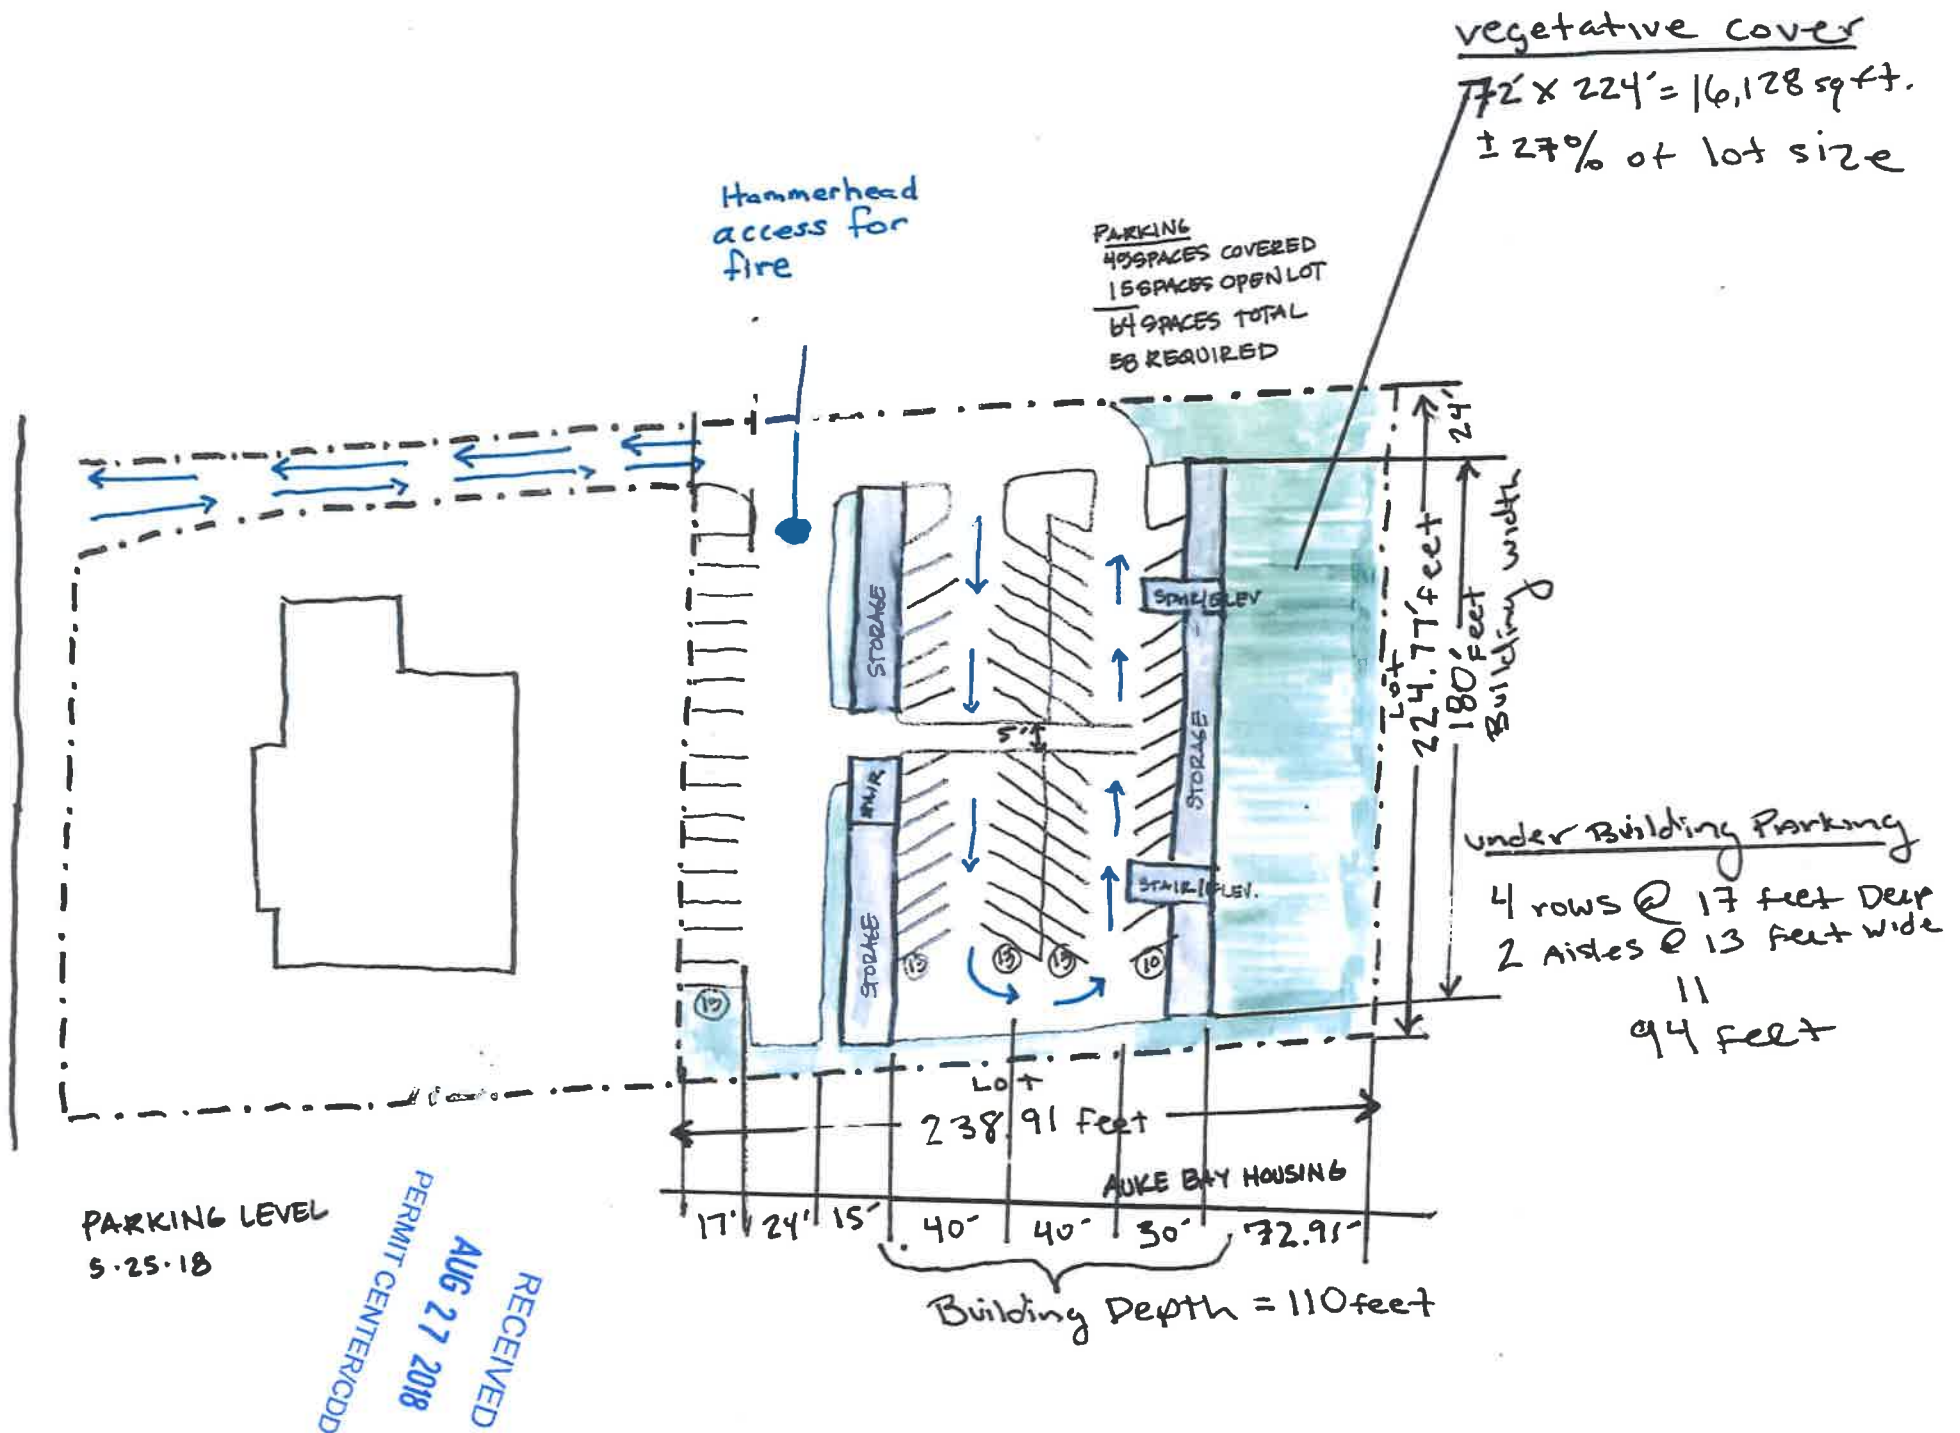 vegetative cover
72' x 224' = 16,128 sq ft.
± 27% of lot size
Hammerhead
access for
fire
PARKING
49 SPACES COVERED
15 SPACES OPEN LOT
64 SPACES TOTAL
58 REQUIRED
24'
Lot
224.77' feet
180' Feet
Building width
STORAGE
STAIR/ELEV
5'
STORAGE
STORAGE
STAIR/ELEV.
13
13
13
10
15
under Building Parking
4 rows @ 17 feet Deep
2 Aisles @ 13 feet wide
11
94 feet
Lot
238.91 feet
AUKE BAY HOUSING
17' 24' 15' 40' 40' 30' 72.91'
Building Depth = 110 feet
PARKING LEVEL
5.25.18
RECEIVED
AUG 27 2018
PERMIT CENTER/CDD